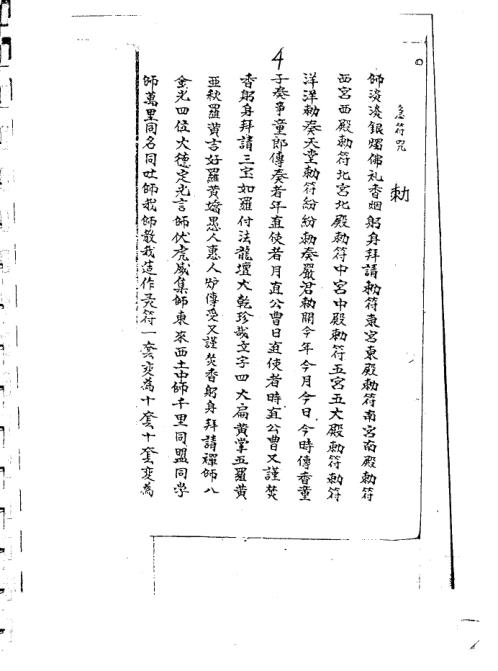 急符咒
勅
師淡淡銀燭佛礼香烟躬身拜請勅符東宮東殿勅符南宮南殿勅符
西宮西殿勅符北宮北殿勅符中宮中殿勅符五宮五大殿勅符勅符
洋洋勅奏天堂勅符紛紛勅奏嚴君勅開今年今月今日今時傳香童
子奏事童郎傳奏者年直使者月直公曹日直使者時直公曹又謹焚
香躬身拜請三宝如羅付法龍壇大乾珍哉立字四大扁黄掌五羅黄
亞秋羅黄言好羅黄嬌愚人惠人妙傳受又謹焚香躬身拜請禪師八
金光四位大德定光言師伏虎威集師東來西土中師千里同盟同学
師萬里同名同吐師哉師散哉造作灵符一套变為十套十套变為
4